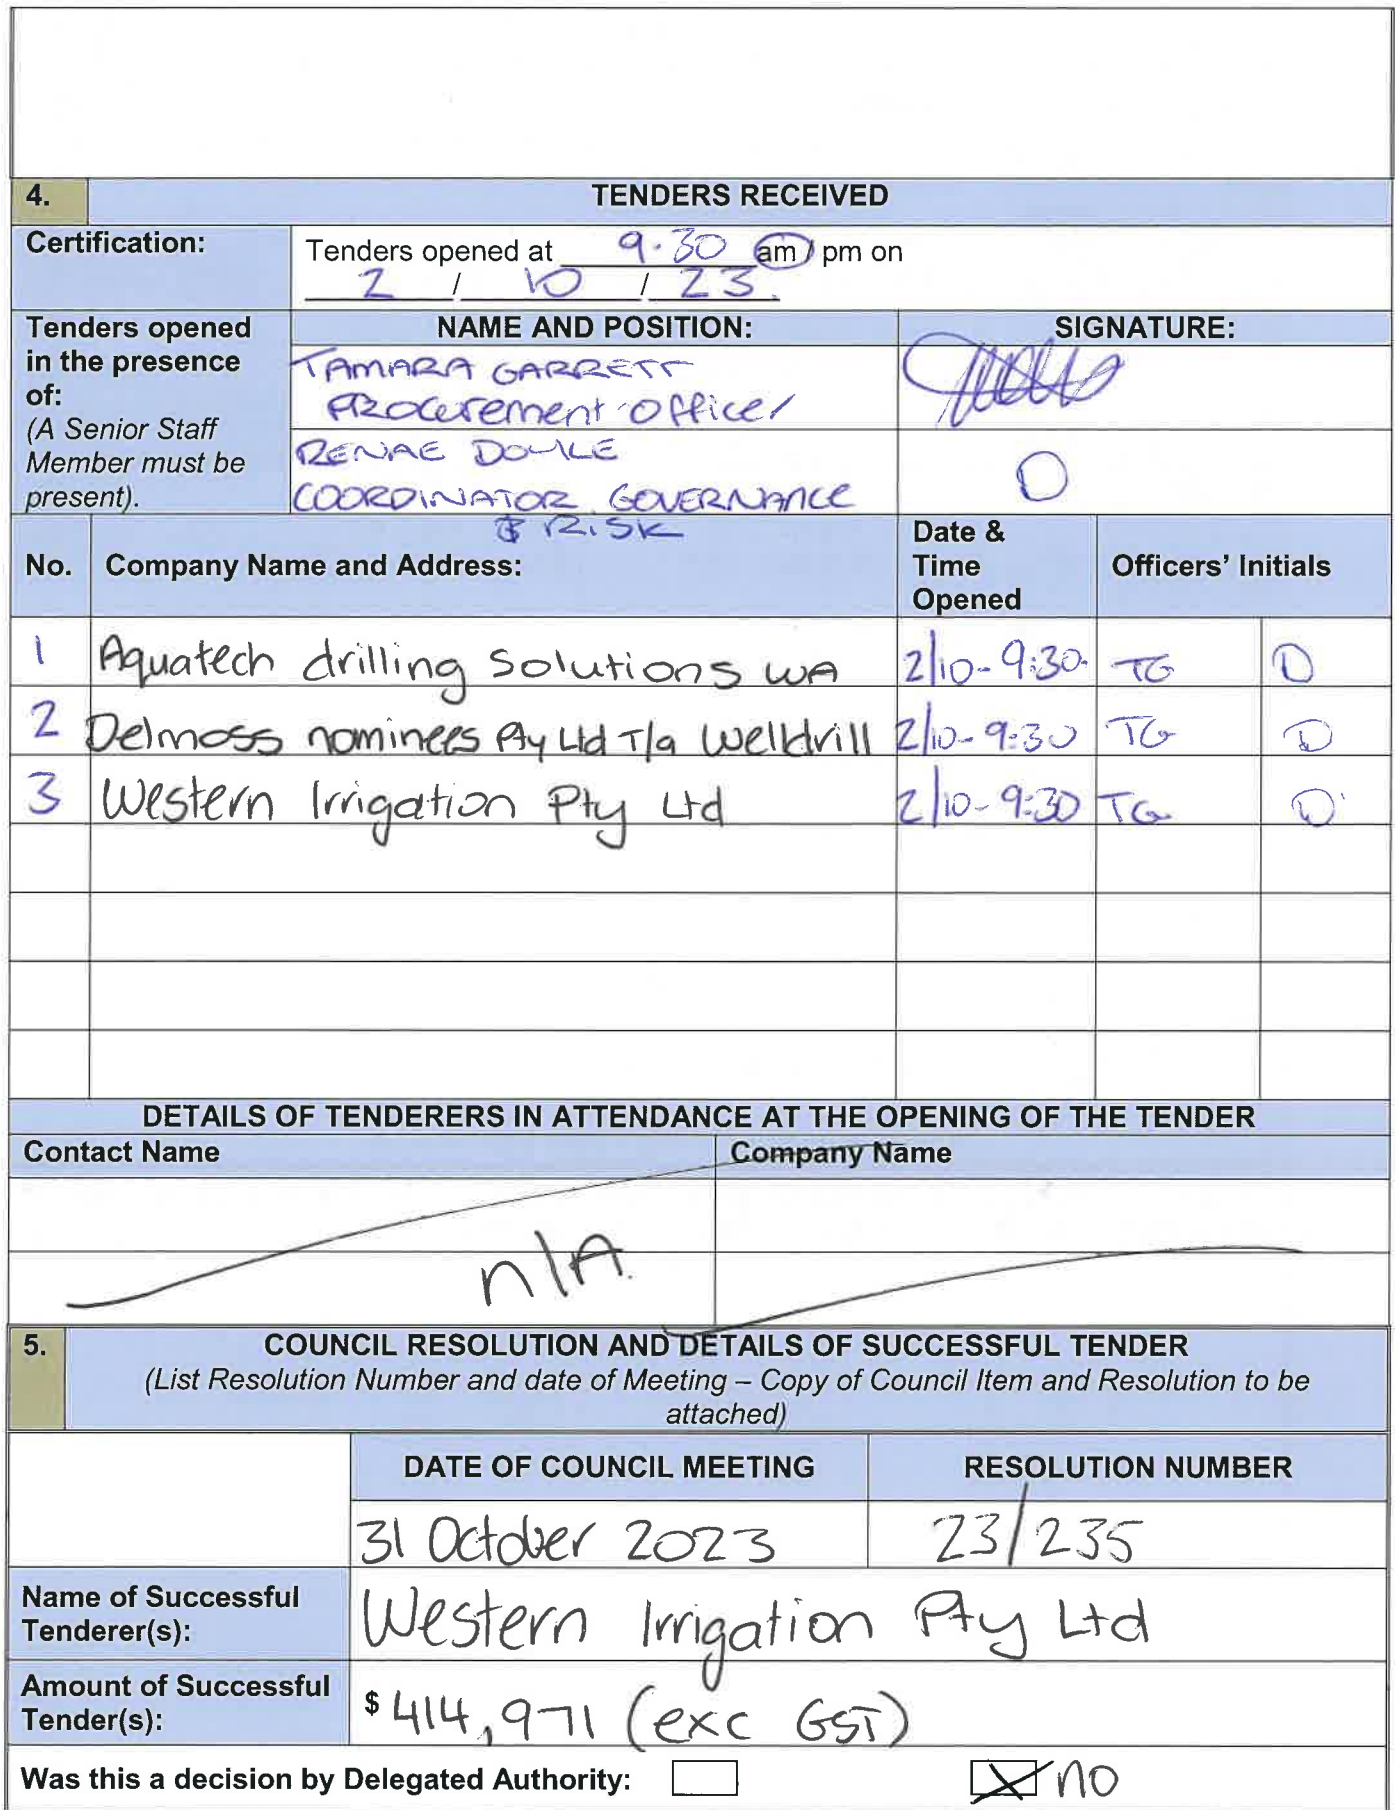 4. TENDERS RECEIVED
Certification: Tenders opened at 9.30 am / pm on
2 / 10 / 23.
Tenders opened in the presence of: (A Senior Staff Member must be present).
NAME AND POSITION: SIGNATURE:
TAMARA GARRETT
Procurement Officer
RENAE DOYLE
COORDINATOR GOVERNANCE
& RISK
No. Company Name and Address: Date & Time Opened Officers' Initials
1 Aquatech drilling Solutions WA 2/10-9:30. TG D
2 Delmoss nominees Pty Ltd T/a Welldrill 2/10-9:30 TG D
3 Western Irrigation Pty Ltd 2/10-9:30 TG D
DETAILS OF TENDERERS IN ATTENDANCE AT THE OPENING OF THE TENDER
Contact Name Company Name
n/A.
5. COUNCIL RESOLUTION AND DETAILS OF SUCCESSFUL TENDER
(List Resolution Number and date of Meeting – Copy of Council Item and Resolution to be
attached)
DATE OF COUNCIL MEETING RESOLUTION NUMBER
31 October 2023 23/235
Name of Successful Tenderer(s): Western Irrigation Pty Ltd
Amount of Successful Tender(s): $ 414,971 (exc GST)
Was this a decision by Delegated Authority: no